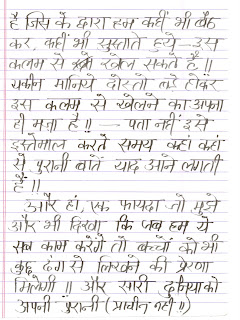 है जिस के द्वारा हम कहीं भी बैठ
कर, कहीं भी सुस्ताते हुये - इस
कलम से खेल सकते हैं ॥
यकीन मानिये दोस्तो बड़े होकर
इस कलम से खेलने का अपना
ही मज़ा है ॥ — पता नहीं इसे
इस्तेमाल करते समय कहां कहां
से पुरानी बातें याद आने लगती
हैं ॥
और हां, एक फायदा तो मुझे
और भी दिखा कि जब हम ये
सब काम करेंगे तो बच्चों को भी
कुछ ढंग से लिखने की प्रेरणा
मिलेगी ॥ और सारी दुनिया को
अपनी पुरानी (प्राचीन नहीं ॥)